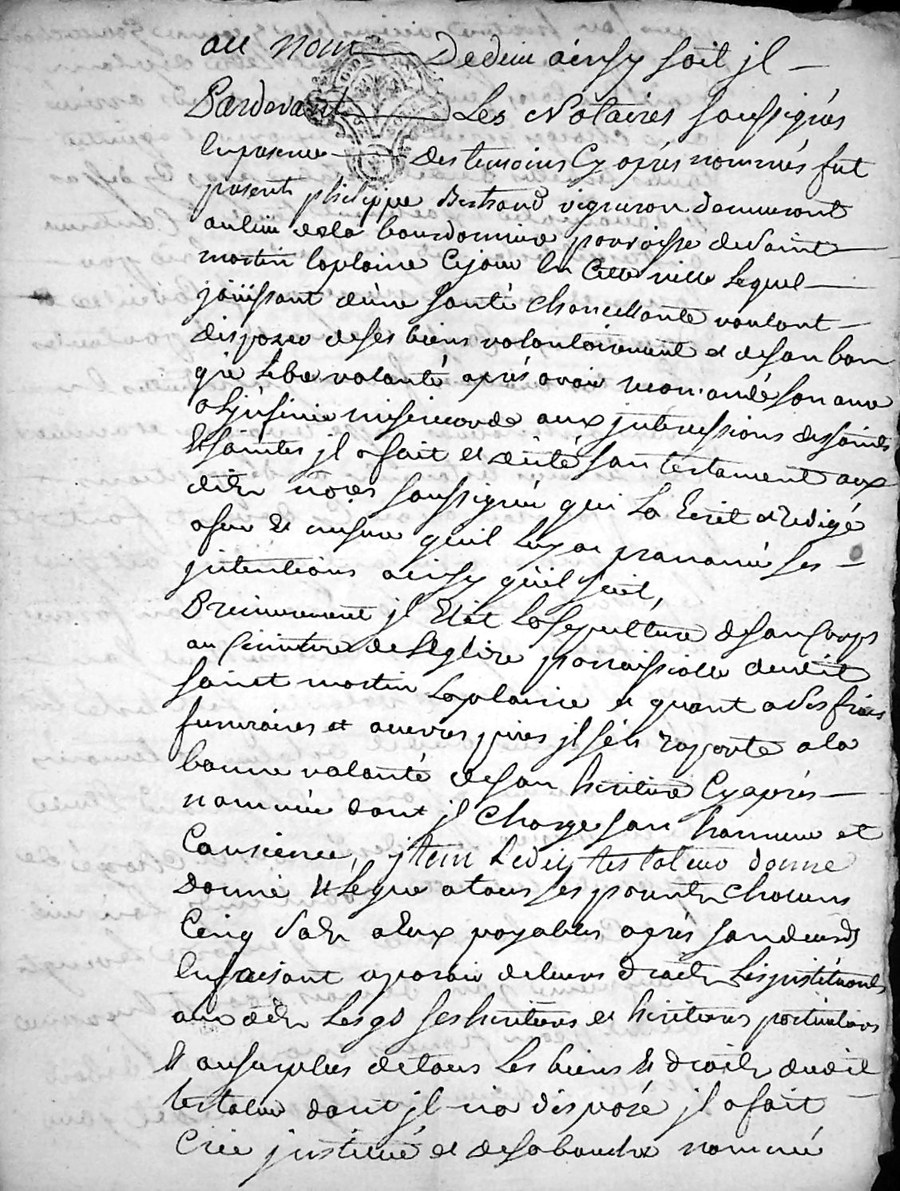 au nom De dieu ainsy soit jl
Pardevant Les Notaires soussignés
En presence des temoins Cy aprés nommés fut
present philippe Bertrand vigneron demeurant
au lieu de la bourdonnire parroisse de Saint
martin laplaine Cejour En Cette ville Lequel
joüissant dúne Santé Chancellante voulant
disposer de Ses biens volontairement et de son bon
gré Libre volanté aprés avoir recomandé Son ame
a L'jnfinie misericorde aux jntercessions des saints
Et saintes jl a fait et dicté son testament aux
dits no.res soussignés qui La Ecrit et Redigé
a fur Et mesure qu'il Luy a prononcé Ses
jntentions ainsy qu'il Suit,
Premierement jl Elit La Sepulture de son Corps
au Cimetiere de L'Eglise parroissialle dudit
Saint martin Laplaine et quant a Ses frais
funeraires et oeuvres pies jl s'en raporte a la
bonne valonté de son heritiere Cy aprés
nommée dont jl Charge son honneur et
Consience, jtem Ledit testateur donne
Donne Et Legue a tous Ses parents Chacuns
Cinq Sols a Eux payables aprés son deceds
En faisant aparoir de leurs droits Les jnstituants
aux dits Legs ses heritiers et heritieres particuliers
Et au surplus de tous Les biens Et droits dudit
testateur dont jl n'a disposé jl a fait
Créé jnstitué et de sa bouche nommé